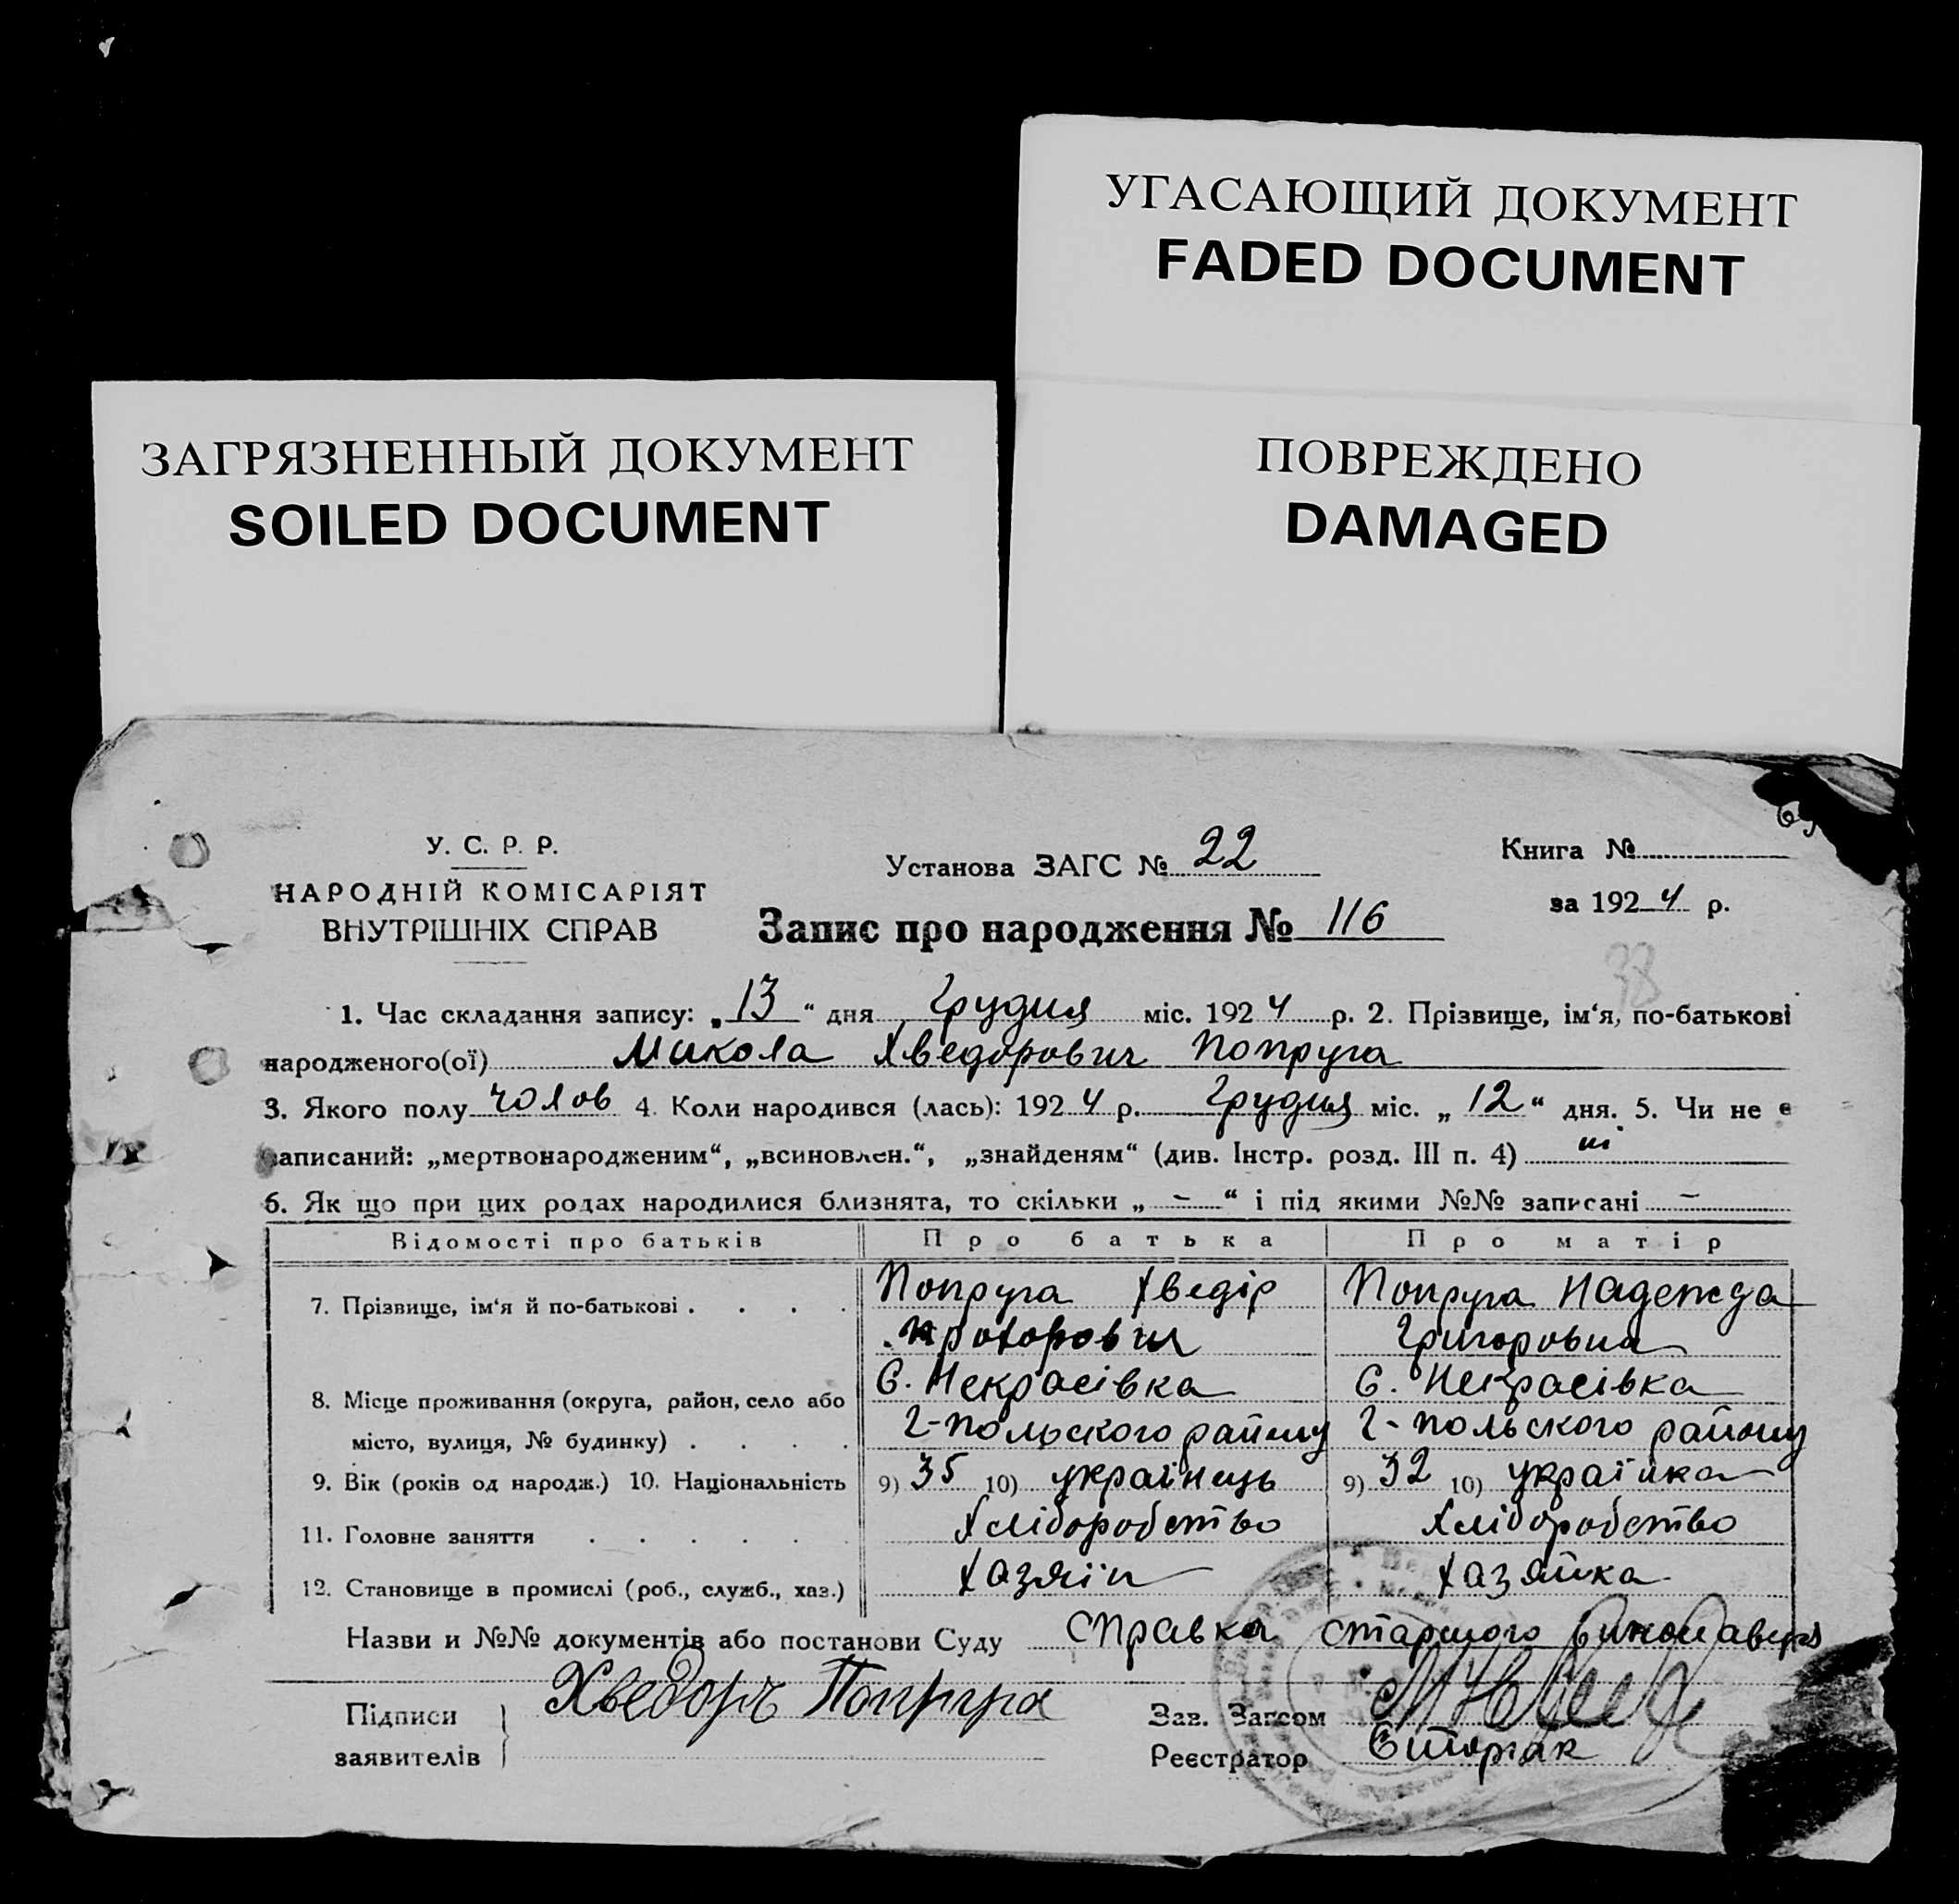 УГАСАЮЩИЙ ДОКУМЕНТ
FADED DOCUMENT
ЗАГРЯЗНЕННЫЙ ДОКУМЕНТ
SOILED DOCUMENT
ПОВРЕЖДЕНО
DAMAGED
У. С. Р. Р.
НАРОДНІЙ КОМІСАРІЯТ
ВНУТРІШНІХ СПРАВ
Установа ЗАГС № 22
Запис про народження № 116
Книга №
за 1924 р.
38
1. Час складання запису: „13“ дня Грудня міс. 1924 р. 2. Прізвище, ім‘я, по-батькові
народженого(ої) Микола Хведорович Попруга
3. Якого полу чолов 4. Коли народився (лась): 1924 р. Грудня міс. „12“ дня. 5. Чи не є
записаний: „мертвонародженим“, „всиновлен.“, „знайденям“ (див. Інстр. розд. III п. 4) ні
6. Як що при цих родах народилися близнята, то скільки „ – “ і під якими №№ записані –
Відомості про батьків Про батька Про матір
7. Прізвище, ім‘я й по-батькові . . . . Попруга Хведір Попруга Надежда
Прохорович Григоровна
8. Місце проживання (округа, район, село або С. Некрасівка С. Некрасівка
місто, вулиця, № будинку) . . . . Г-Польского району Г-Польского району
9. Вік (років од народж.) 10. Національність 9) 35 10) українець 9) 32 10) українка
11. Головне заняття . . . . . . Хліборобство Хліборобство
12. Становище в промислі (роб., служб., хаз.) Хазяїн Хазяйка
Назви и №№ документів або постанови Суду Справка старшого виконавця
Підписи заявителів Хведоръ Попруга
Зав. Загсом
Реєстратор